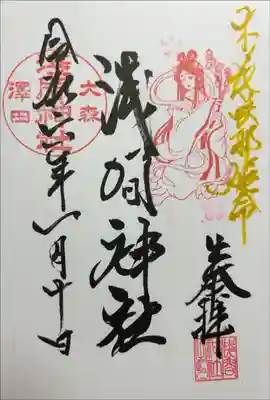 木ノ花咲耶姫命
奉拝
浅間神社
大森
浅間神社
澤田
令和六年八月十日